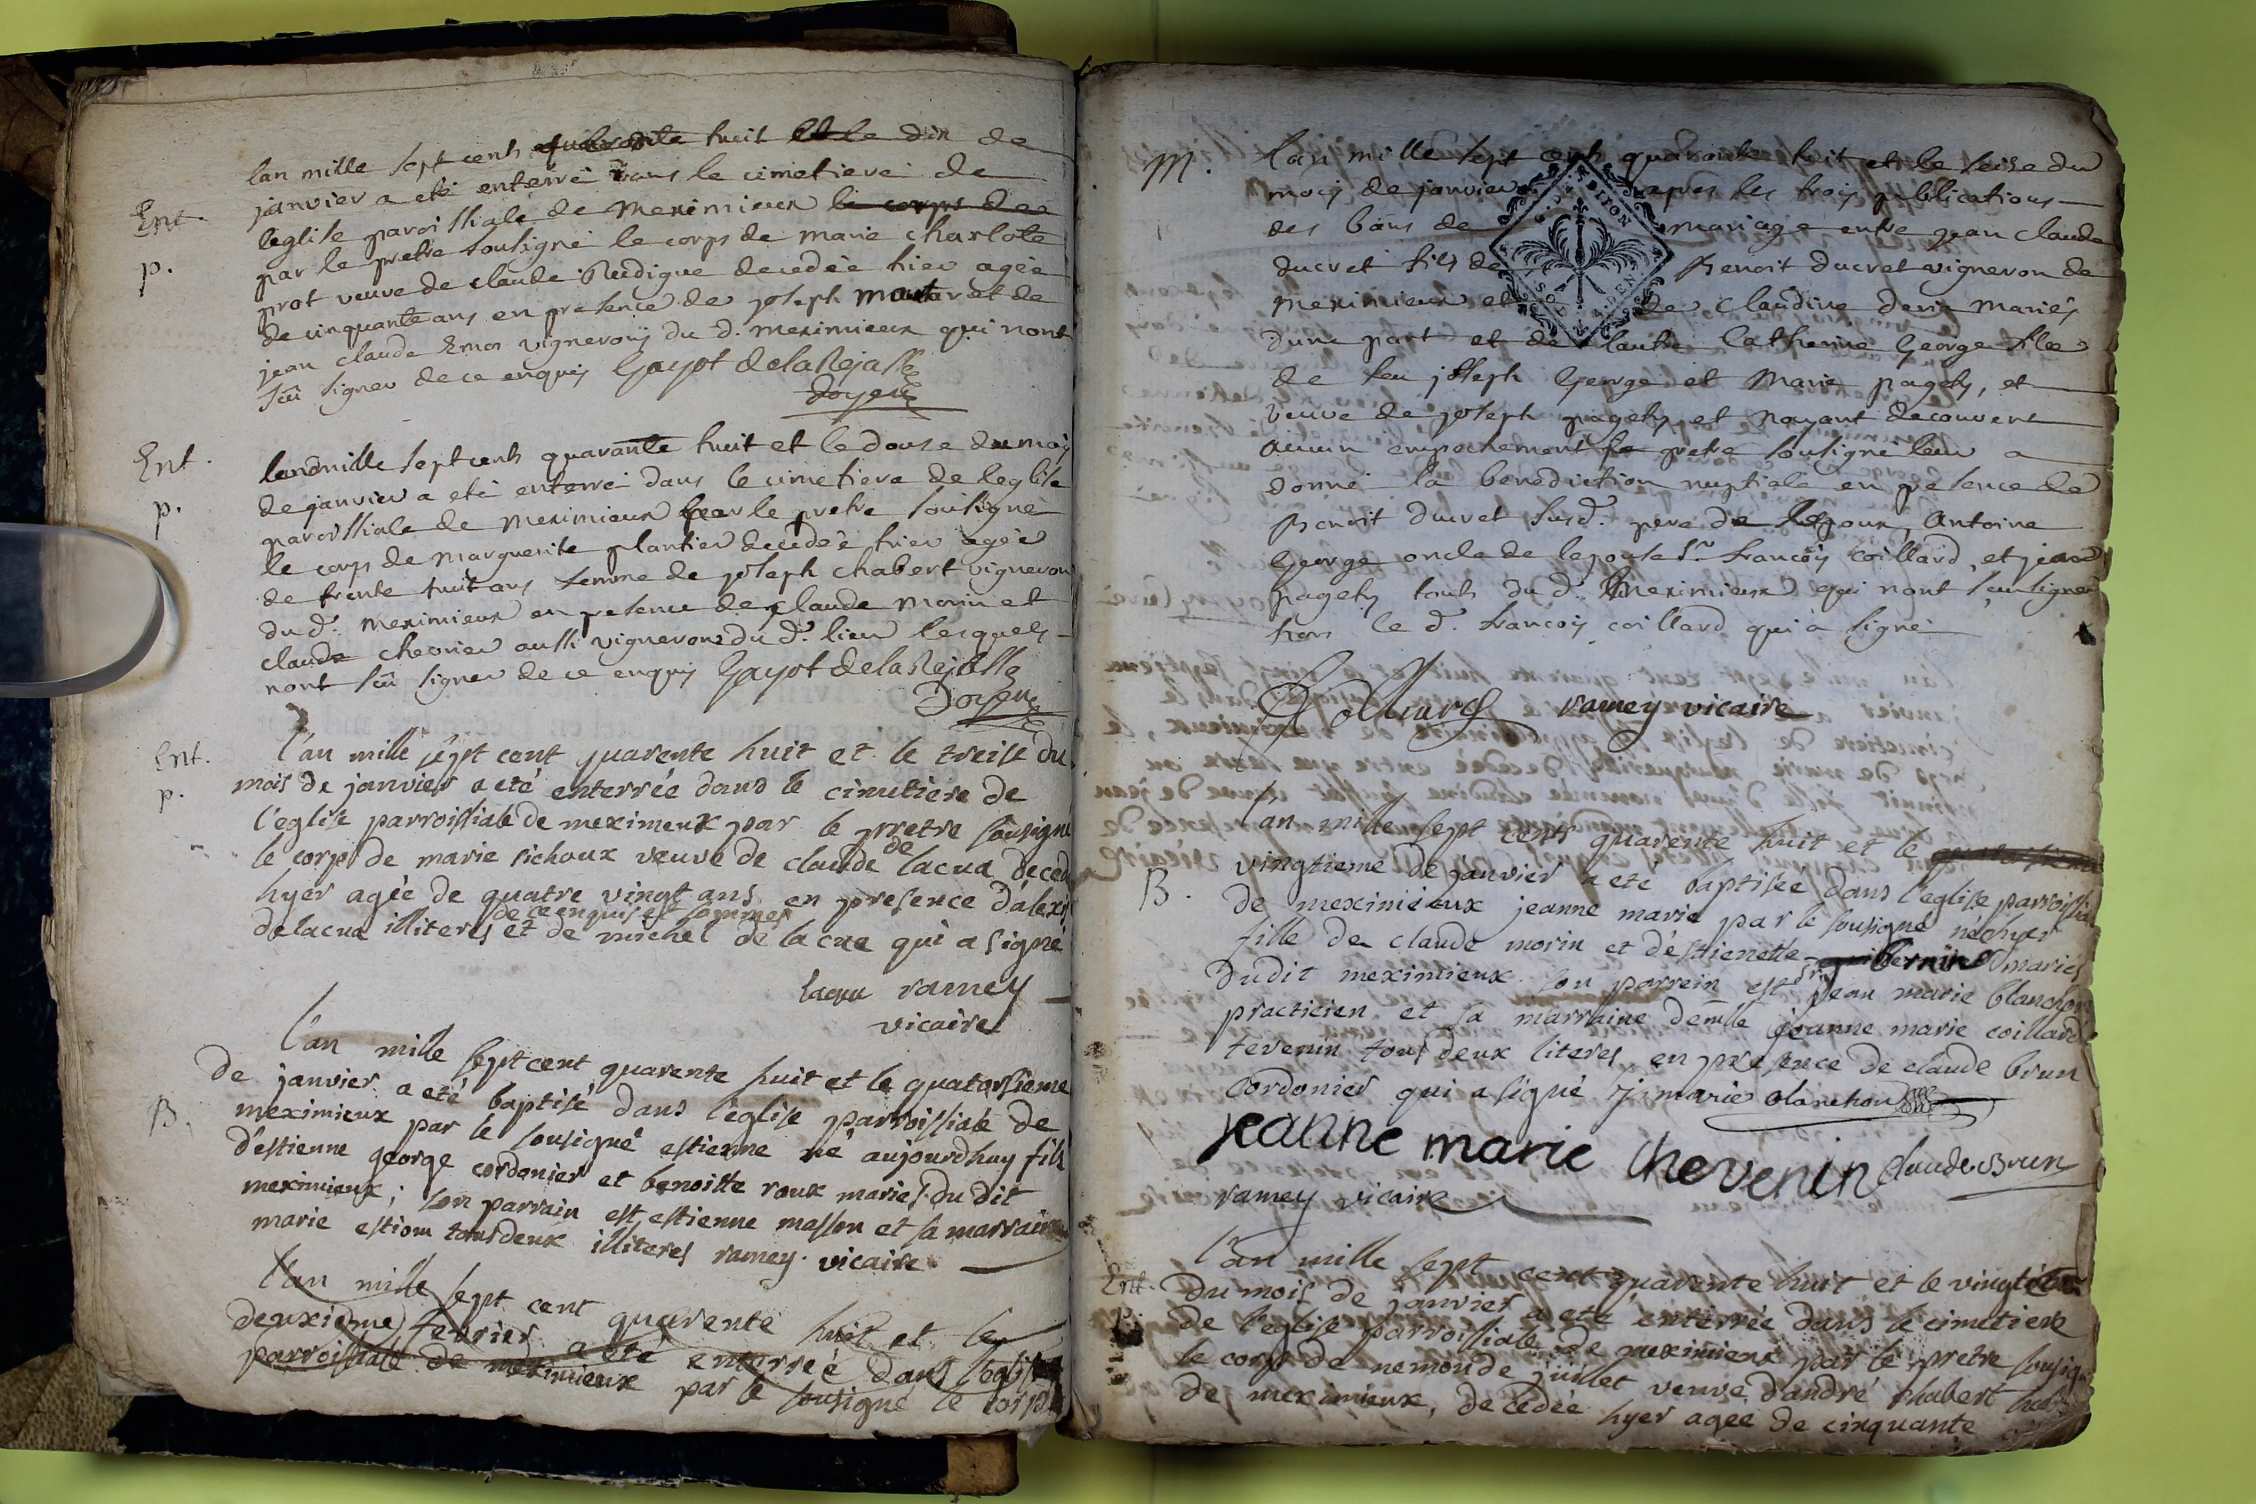 lan mille sept cents quarante huit et le dix de
janvier a eté enterré dans le cimetiere de
Ent.
leglise paroissiale de meximieux le corps de
p.
par le pretre sousigné le corps de marie charlote
prot veuve de claude Rudigue decedée hier agée
de cinquante ans en presence de joseph et de
jean claude vignerons du d. meximieux qui nont
sçû signer de ce enquis Gayot de la Rejasse
Doyen
Ent.
p.
mille sept cents quarante huit et le douse du mois
de janvier a eté enterré dans le cimetiere de leglise
paroissiale de meximieux par le pretre sousigné
le corps de marguerite plantier decedée hier agée
de trente huit ans femme de joseph chabert vigneron
du d. meximieux en presence de claude morin et
claude chevrier aussi vignerons du d. lieu lesquels
nont sçû signer de ce enquis Gayot de la Rejasse
Doyen
Ent.
p.
l'an mille sept cent quarente huit et le treise du
mois de janvier a eté enterrée dans le cimetiere de
l'eglise parroissiale de meximeux par le pretre sousigné
le corps de marie sichoux veuve de claude de lacua
hyer agée de quatre vingt ans en presence d'alexis
de ce enquis et sommés
delacua illiteres et de michel de la cua qui a signé
lacua ramey
vicaire
B.
l'an mille sept cent quarente huit et le quatorsieme
de janvier a eté baptisé dans l'eglise parroissiale de
meximieux par le sousigné estienne né aujourdhuy fils
d'estienne george cordonier et benoitte roux mariés du dit
meximieux; son parrain est estienne masson et sa marraine
marie estiom tous deux illiteres ramey vicaire
l'an mille sept cent quarente huit et le
deuxieme fevrier a eté enterreé dans l'eglise
parroissiale de meximieux par le sousigné le corps
M.
l'an mille sept cents quarante huit et le seise du
mois de janvier apres les trois publications
des bans de mariage entre jean claude
ducret fils de Benoit ducret vigneron de
meximieux et de claudine mariés
dune part et de lautre Catherine George fille
de feu joseph George et Marie pagets, et
veuve de joseph pagets et nayant decouvert
aucun empechement le pretre sousigné leur a
donné la benediction nuptiale en presence de
Benoit ducret susd. pere de lepoux, Antoine
George oncle de lepouse Sr. françois Coillard, et jean
pagets touts du d. Meximieux qui nont sceu signer
hors le d. françois coillard qui a signé
Coilliard ramey vicaire
B.
l'an mille sept cents quarente huit et le
vingtieme de janvier a eté baptisée dans l'eglise parroissiale
de meximieux jeanne marie par le sousigné néehyer
fille de claude morin et d'estienette mariés
dudit meximieux son parrein est Sr. jean marie blanchon
practicien et sa marraine demlle jeanne marie coillard
tevenin tous deux literes, en presence de claude brun
cordonier qui a signé j. marie blanchon
jeanne marie thevenin claude Brun
ramey vicaire
Ent.
p.
l'an mille sept cent quarente huit et le
du mois de janvier a eté enterrée dans le cimetiere
de l'eglise parroissiale de meximieux par le pretre
le corps de nemonde juillet veuve d'andré chabert
de meximieux, decedée hyer agée de cinquante